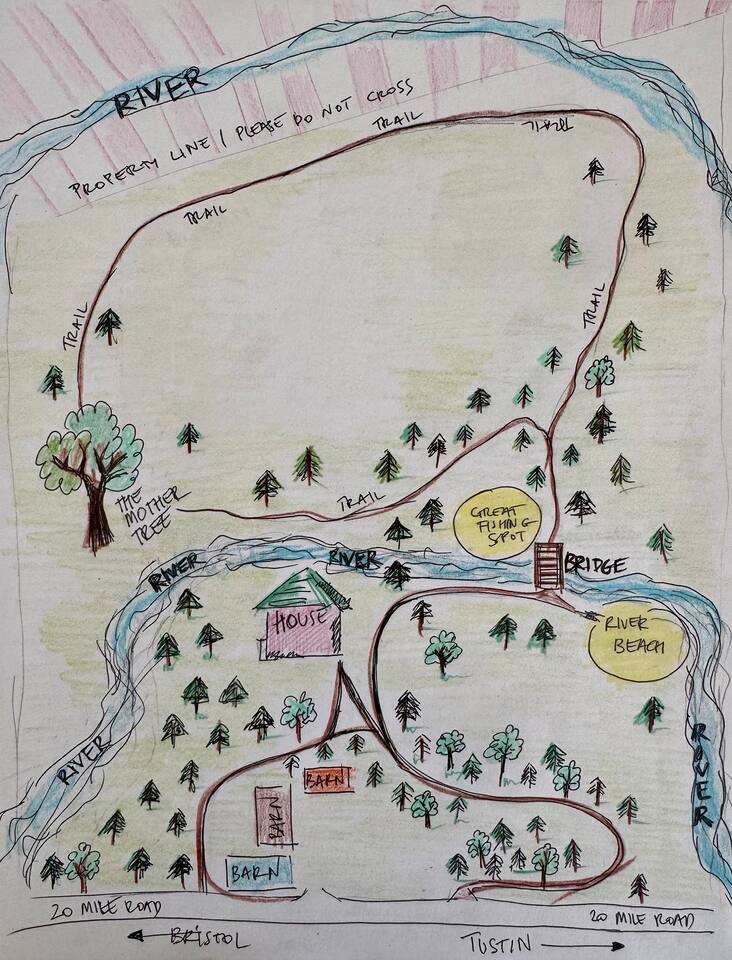 RIVER
PROPERTY LINE / PLEASE DO NOT CROSS
TRAIL
TRAIL
TRAIL
TRAIL
TRAIL
THE
MOTHER
TREE
TRAIL
GREAT
FISHING
SPOT
RIVER
RIVER
BRIDGE
HOUSE
RIVER
BEACH
RIVER
RIVER
BARN
BARN
BARN
20 MILE ROAD
20 MILE ROAD
BRISTOL
TUSTIN